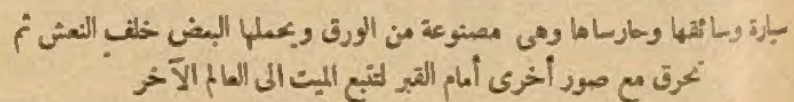 سيارة وسائقها وحارساها وهى مصنوعة من الورق ويحملها البعض خلف النعش ثم
تحرق مع صور أخرى أمام القبر لتتبع الميت الى العالم الآخر